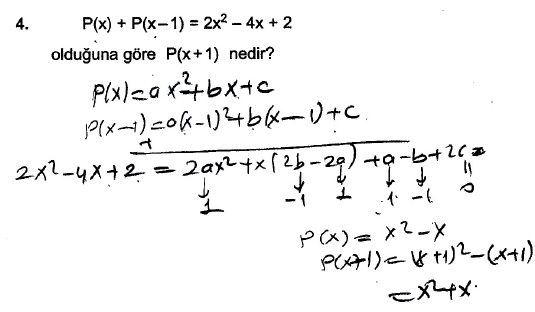 4. P(x) + P(x–1) = 2x² – 4x + 2
olduğuna göre P(x+1) nedir?
P(x)=ax²+bx+c
P(x–1)=a(x–1)²+b(x–1)+c
+
2x²–4x+2 = 2ax²+x(2b–2a)+a–b+2c=
↓ ↓ ↓ ↓ ↓ "
1 –1 1 1 –1 0
P(x) = x²–x
P(x+1)=(x+1)²–(x+1)
=x²+x.